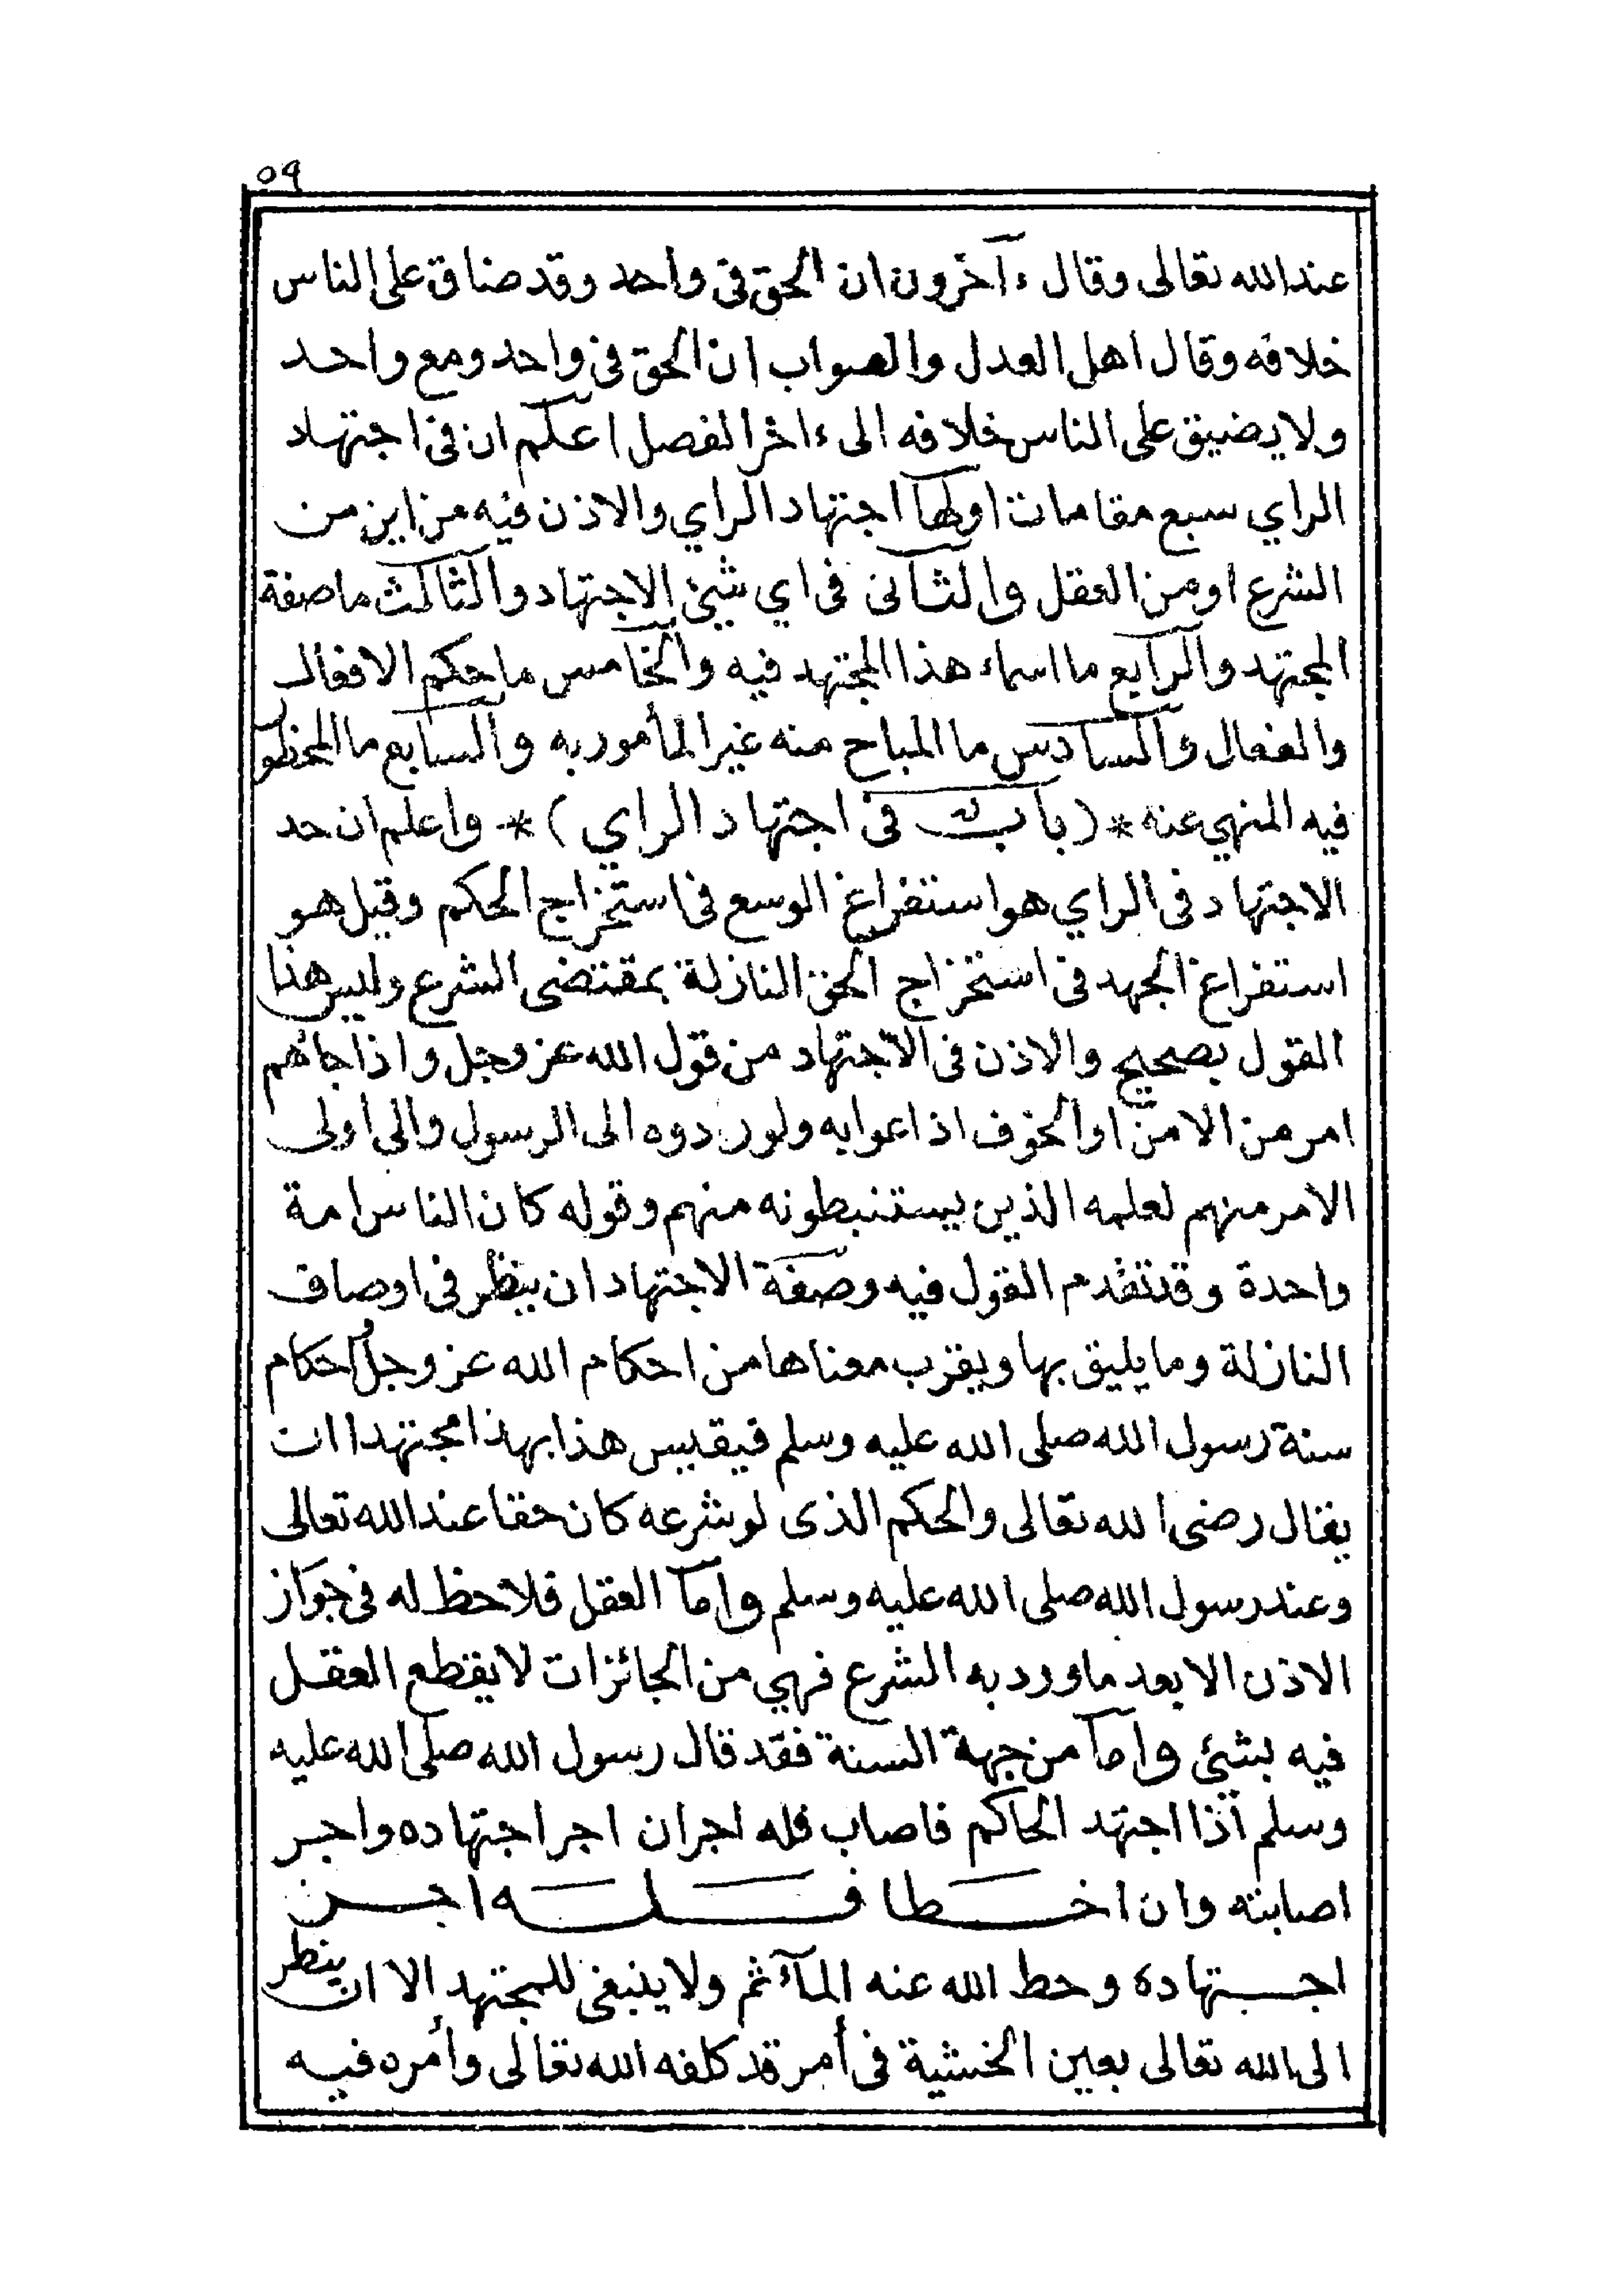 ٥٩
عند الله تعالى وقال ءآخرون ان الحق فى واحد وقد ضاق على الناس
خلافه وقال اهل العدل والصواب ان الحق فى واحد ومع واحد
ولا يضيق على الناس خلافه الى ءاخر الفصل اعلم ان فى اجتهاد
الراي سبع مقامات اولها اجتهاد الراي والاذن فيه من اين من
الشرع او من العقل والثانى فى اي شيئ الاجتهاد والثالث ما صفة
المجتهد والرابع ما اسماء هذا المجتهد فيه والخامس ما حكم الافعال
والفعال والسادس ما المباح منه غير المأمور به والسابع ما المحظور
فيه المنهي عنه * ( باب فى اجتهاد الراي ) * واعلم ان حد
الاجتهاد فى الراي هو استفراغ الوسع فى استخراج الحكم وقيل هو
استفراغ الجهد فى استخراج الحق النازلة بمقتضى الشرع وليس هذا
القول بصحيح والاذن فى الاجتهاد من قول الله عز وجل واذا جائهم
امر من الامن او الخوف اذاعوا به ولو ردوه الى الرسول والى اولى
الامر منهم لعلمه الذين يستنبطونه منهم وقوله كان الناس امة
واحدة وقد تقدم القول فيه وصفة الاجتهاد ان ينظر فى اوصاف
النازلة وما يليق بها ويقرب معناها من احكام الله عز وجل واحكام
سنة رسول الله صلى الله عليه وسلم فيقيس هذا بهذا مجتهدا ان
يقال رضى الله تعالى والحكم الذى لو شرعه كان حقا عند الله تعالى
وعند رسول الله صلى الله عليه وسلم واما العقل فلا حظ له فى جواز
الاذن الا بعد ما ورد به الشرع فهي من الجائزات لا يقطع العقل
فيه بشيئ واما من جهة السنة فقد قال رسول الله صلى الله عليه
وسلم أذا اجتهد الحاكم فاصاب فله اجران اجر اجتهاده واجر
اصابته وان اخطا فله اجر
اجتهاده وحط الله عنه المآثم ولا ينبغى للمجتهد الا ان ينظر
الى الله تعالى بعين الخشية فى أمر قد كلفه الله تعالى وأمره فيه